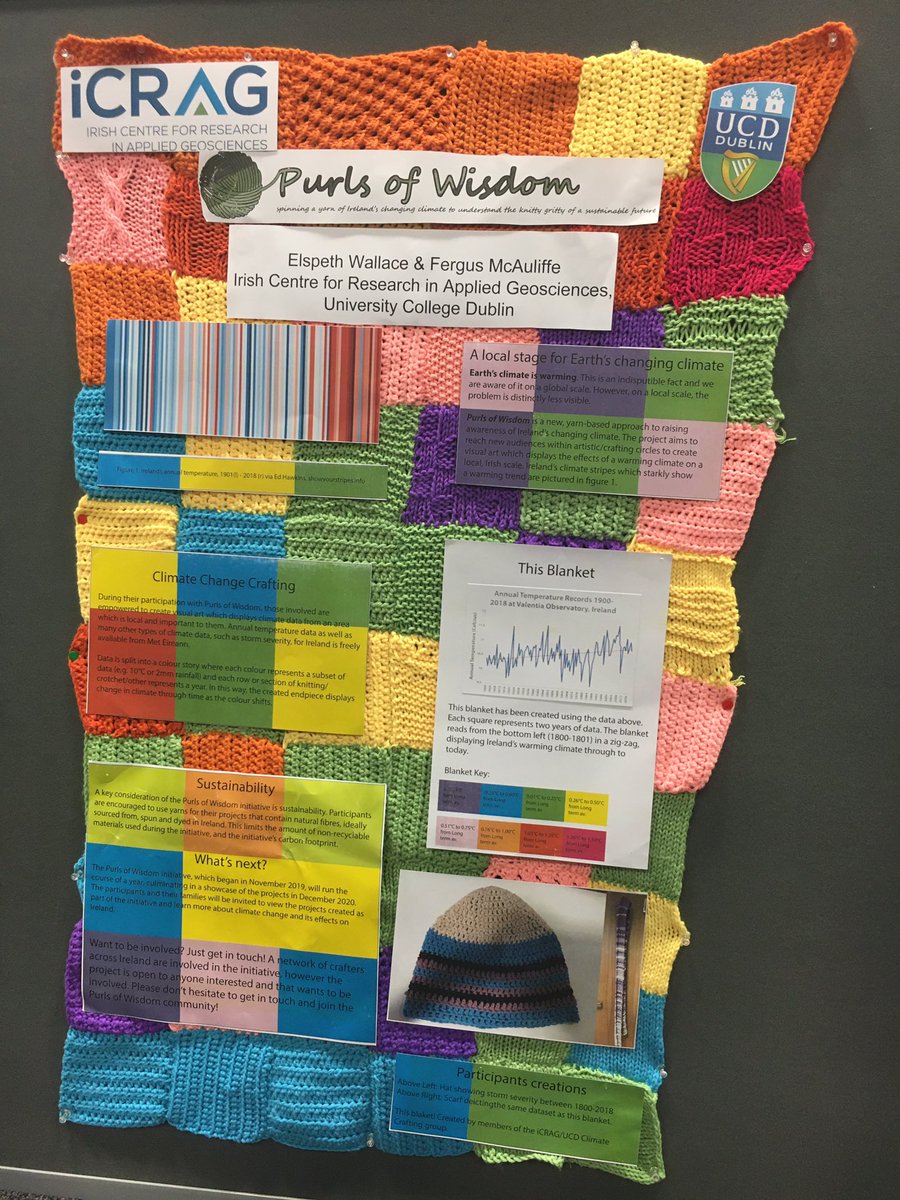 iCRAG
IRISH CENTRE FOR RESEARCH
IN APPLIED GEOSCIENCES
UCD
DUBLIN
Purls of Wisdom
spinning a yarn of Ireland's changing climate to understand the knitty gritty of a sustainable future
Elspeth Wallace & Fergus McAuliffe
Irish Centre for Research in Applied Geosciences,
University College Dublin
Figure 1: Ireland's annual temperature, 1901(l) - 2018 (r) via Ed Hawkins, showyourstripes.info
A local stage for Earth's changing climate
Earth's climate is warming. This is an indisputible fact and we
are aware of it on a global scale. However, on a local scale, the
problem is distinctly less visible.
Purls of Wisdom is a new, yarn-based approach to raising
awareness of Ireland's changing climate. The project aims to
reach new audiences within artistic/crafting circles to create
visual art which displays the effects of a warming climate on a
local, Irish scale. Ireland's climate stripes which starkly show
a warming trend are pictured in figure 1.
Climate Change Crafting
During their participation with Purls of Wisdom, those involved are
empowered to create visual art which displays climate data from an area
which is local and important to them. Annual temperature data as well as
many other types of climate data, such as storm severity, for Ireland is freely
available from Met Eireann.
Data is split into a colour story where each colour represents a subset of
data (e.g. 10°C or 2mm rainfall) and each row or section of knitting/
crotchet/other represents a year. In this way, the created endpiece displays
change in climate through time as the colour shifts.
This Blanket
Annual Temperature Records 1900-
2018 at Valentia Observatory, Ireland
Annual Temperature (Celsius)
This blanket has been created using the data above.
Each square represents two years of data. The blanket
reads from the bottom left (1800-1801) in a zig-zag,
displaying Ireland's warming climate through to
today.
Blanket Key:
from Long
term av.
0.01°C to 0.25°C
from Long
term av.
0.26°C to 0.50°C
from Long
term av.
0.51°C to 0.75°C
from Long
term av.
0.76°C to 1.00°C
from Long
term av.
from Long
term av.
from Long
term av.
Sustainability
A key consideration of the Purls of Wisdom initiative is sustainability. Participants
are encouraged to use yarns for their projects that contain natural fibres, ideally
sourced from, spun and dyed in Ireland. This limits the amount of non-recyclable
materials used during the initiative, and the initiative's carbon footprint.
What's next?
The Purls of Wisdom initiative, which began in November 2019, will run the
course of a year, culminating in a showcase of the projects in December 2020.
The participants and their families will be invited to view the projects created as
part of the initiative and learn more about climate change and its effects on
Ireland.
Want to be involved? Just get in touch! A network of crafters
across Ireland are involved in the initiative, however the
project is open to anyone interested and that wants to be
involved. Please don't hesitate to get in touch and join the
Purls of Wisdom community!
Participants creations
Above Left: Hat showing storm severity between 1800-2018
Above Right: Scarf deictingthe same dataset as this blanket.
This blaket! Created by members of the iCRAG/UCD Climate
Crafting group.